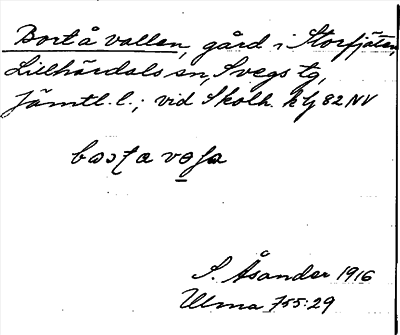 Bortåvallen, gård i Storfjäten,
Lillhärdals sn, Svegs tg,
Jämtl. l.; vid Skolh. k bj 82 NV
S. Åsander 1916
Ulma 755:29